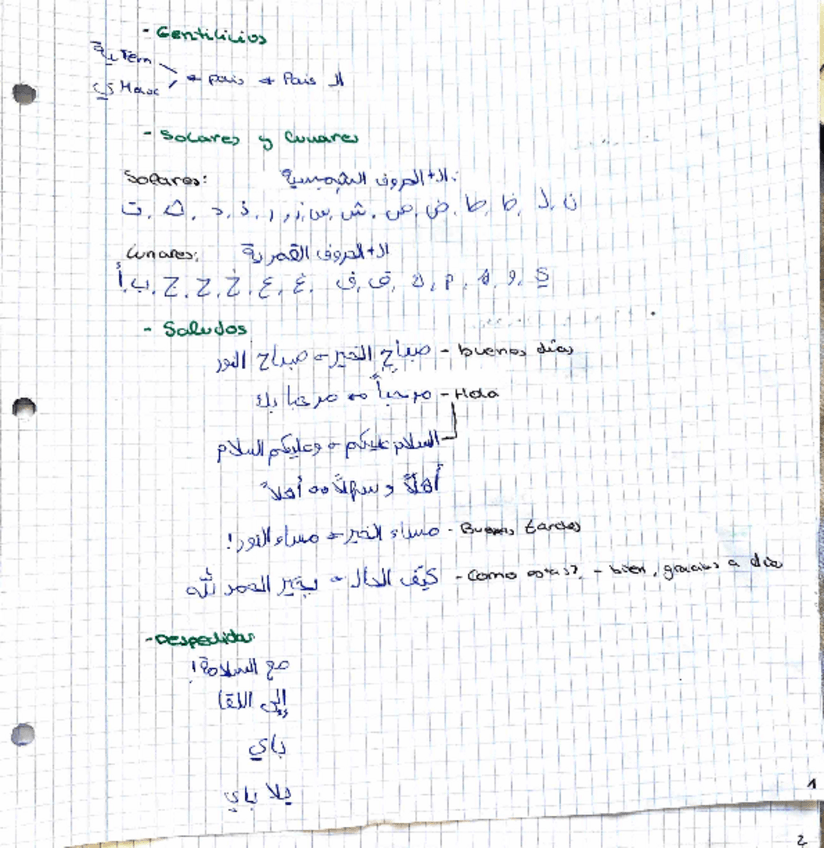 - Gentilicios
ية Fem
ي Masc > + pais + Pais ال
- Solares y Lunares
Solares: ال+الحروف الشمسية:
ت, ث, د, ذ, ر, ز, س, ش, ص, ض, ط, ظ, ل, ن
Lunares: ال+الحروف القمرية
أ, ب, ج, ح, خ, ع, غ, ف, ق, ك, م, ه, و, ي
- Saludos
صباح الخير - صباح النور - buenos días
مرحباً ↔ مرحبا بك - Hola
السلام عليكم - وعليكم السلام
أهلاً و سهلاً ↔ أهلاً
مساء الخير - مساء النور! - Buenas tardes
كيف الحال - بخير الحمد لله - Como estas? - bien, gracias a dios
- Despedidas
مع السلامة!
إلى اللقا
باي
يلا باي
1
2